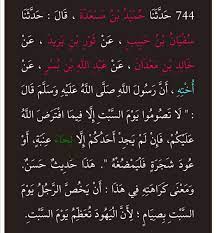 744 حَدَّثَنَا حُمَيْدُ بْنُ مَسْعَدَةَ ، قَالَ : حَدَّثَنَا
سُفْيَانُ بْنُ حَبِيبٍ ، عَنْ ثَوْرِ بْنِ يَزِيدَ ، عَنْ
خَالِدِ بْنِ مَعْدَانَ ، عَنْ عَبْدِ اللَّهِ بْنِ بُسْرٍ ، عَنْ
أُخْتِهِ ، أَنَّ رَسُولَ اللَّهِ صَلَّى اللَّهُ عَلَيْهِ وَسَلَّمَ قَالَ
: " لَا تَصُومُوا يَوْمَ السَّبْتِ إِلَّا فِيمَا افْتَرَضَ اللَّهُ
عَلَيْكُمْ، فَإِنْ لَمْ يَجِدْ أَحَدُكُمْ إِلَّا لِحَاءَ عِنَبَةٍ، أَوْ
عُودَ شَجَرَةٍ فَلْيَمْضُغْهُ ". هَذَا حَدِيثٌ حَسَنٌ.
وَمَعْنَى كَرَاهَتِهِ فِي هَذَا : أَنْ يَخُصَّ الرَّجُلُ يَوْمَ
السَّبْتِ بِصِيَامٍ ؛ لِأَنَّ الْيَهُودَ تُعَظِّمُ يَوْمَ السَّبْتِ.